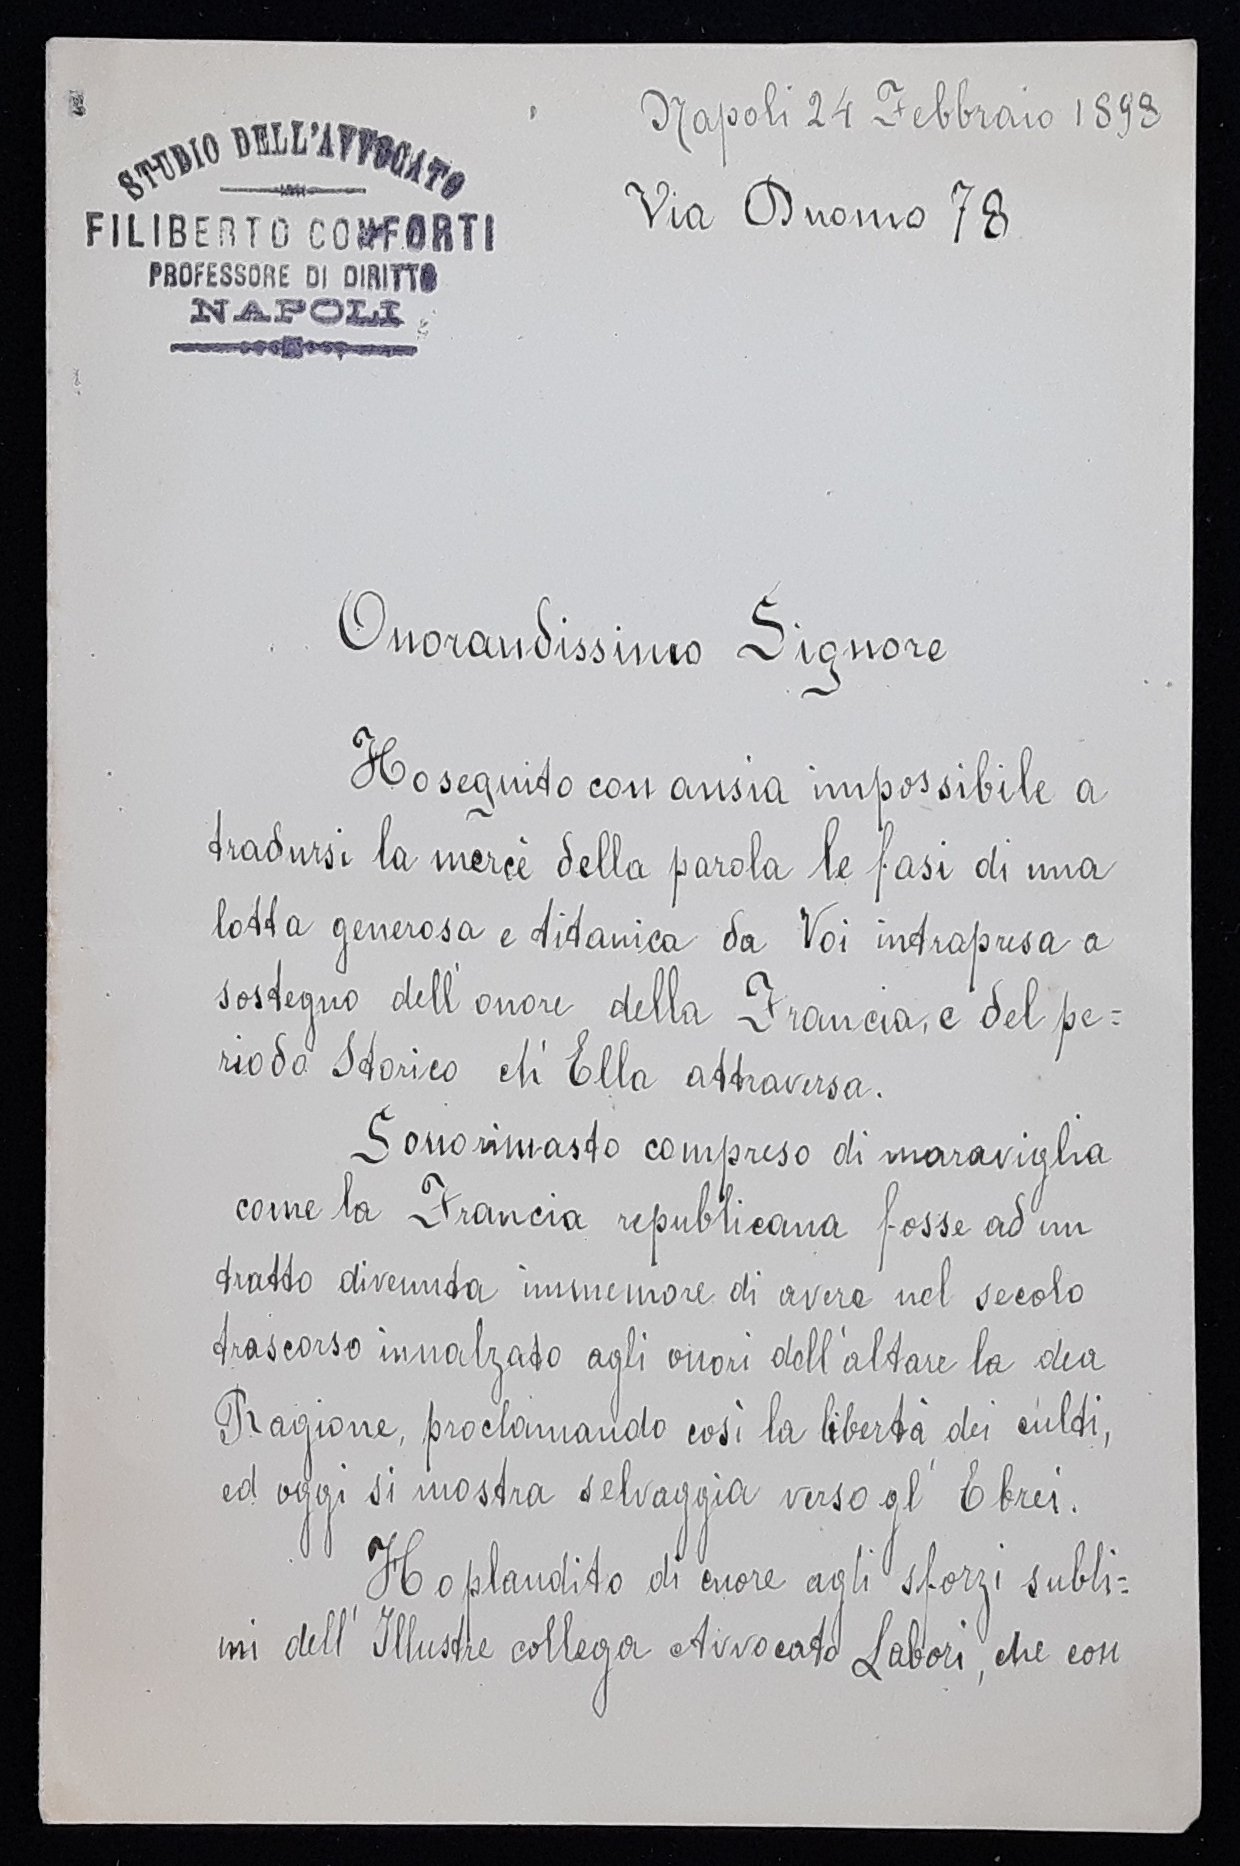 STUDIO DELL'AVVOCATO
FILIBERTO CONFORTI
PROFESSORE DI DIRITTO
NAPOLI
Napoli 24 Febbraio 1898
Via Duomo 78
Onorandissimo Signore
Ho seguito con ansia impossibile a
tradursi la mercè della parola le fasi di una
lotta generosa e titanica da Voi intrapresa a
sostegno dell'onore della Francia, e del pe=
riodo Storico ch'Ella attraversa.
Sono rimasto compreso di maraviglia
come la Francia republicana fosse ad un
tratto divenuta immemore di avere nel secolo
trascorso innalzato agli onori dell'altare la dea
Ragione, proclamando così la libertà dei culti,
ed oggi si mostra selvaggia verso gl'Ebrei.
Ho plaudito di cuore agli sforzi subli=
mi dell'Illustre collega Avvocato Labori, che con